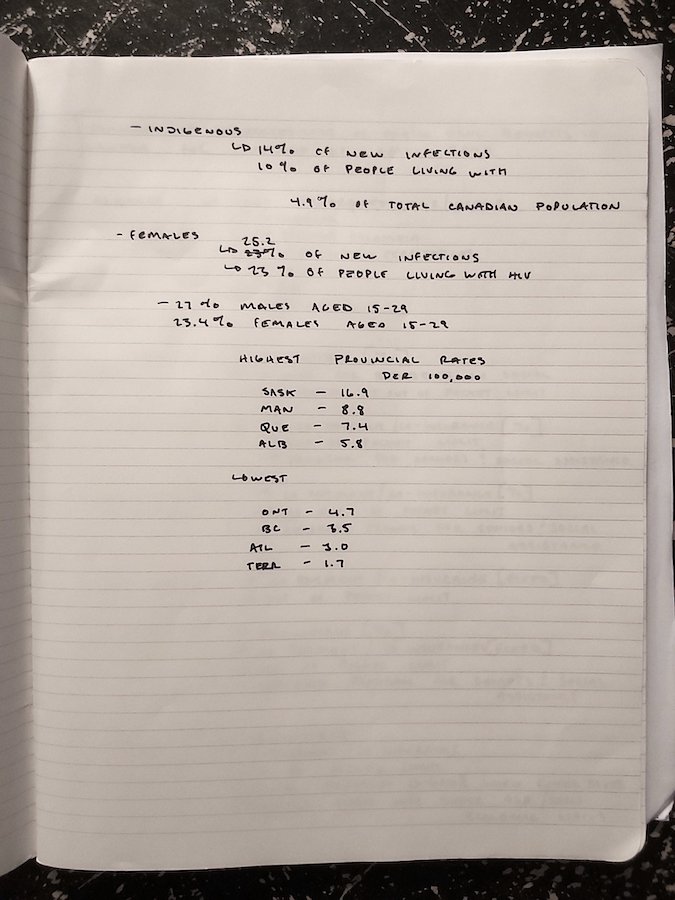 - INDIGENOUS
↳ 14% OF NEW INFECTIONS
10% OF PEOPLE LIVING WITH
4.9% OF TOTAL CANADIAN POPULATION
- FEMALES
25.2
↳ 23% OF NEW INFECTIONS
↳ 23% OF PEOPLE LIVING WITH HIV
- 27% MALES AGED 15-29
23.4% FEMALES AGED 15-29
HIGHEST PROVINCIAL RATES
PER 100,000
SASK - 16.9
MAN - 8.8
QUE - 7.4
ALB - 5.8
LOWEST
ONT - 4.7
BC - 3.5
ATL - 3.0
TERR - 1.7